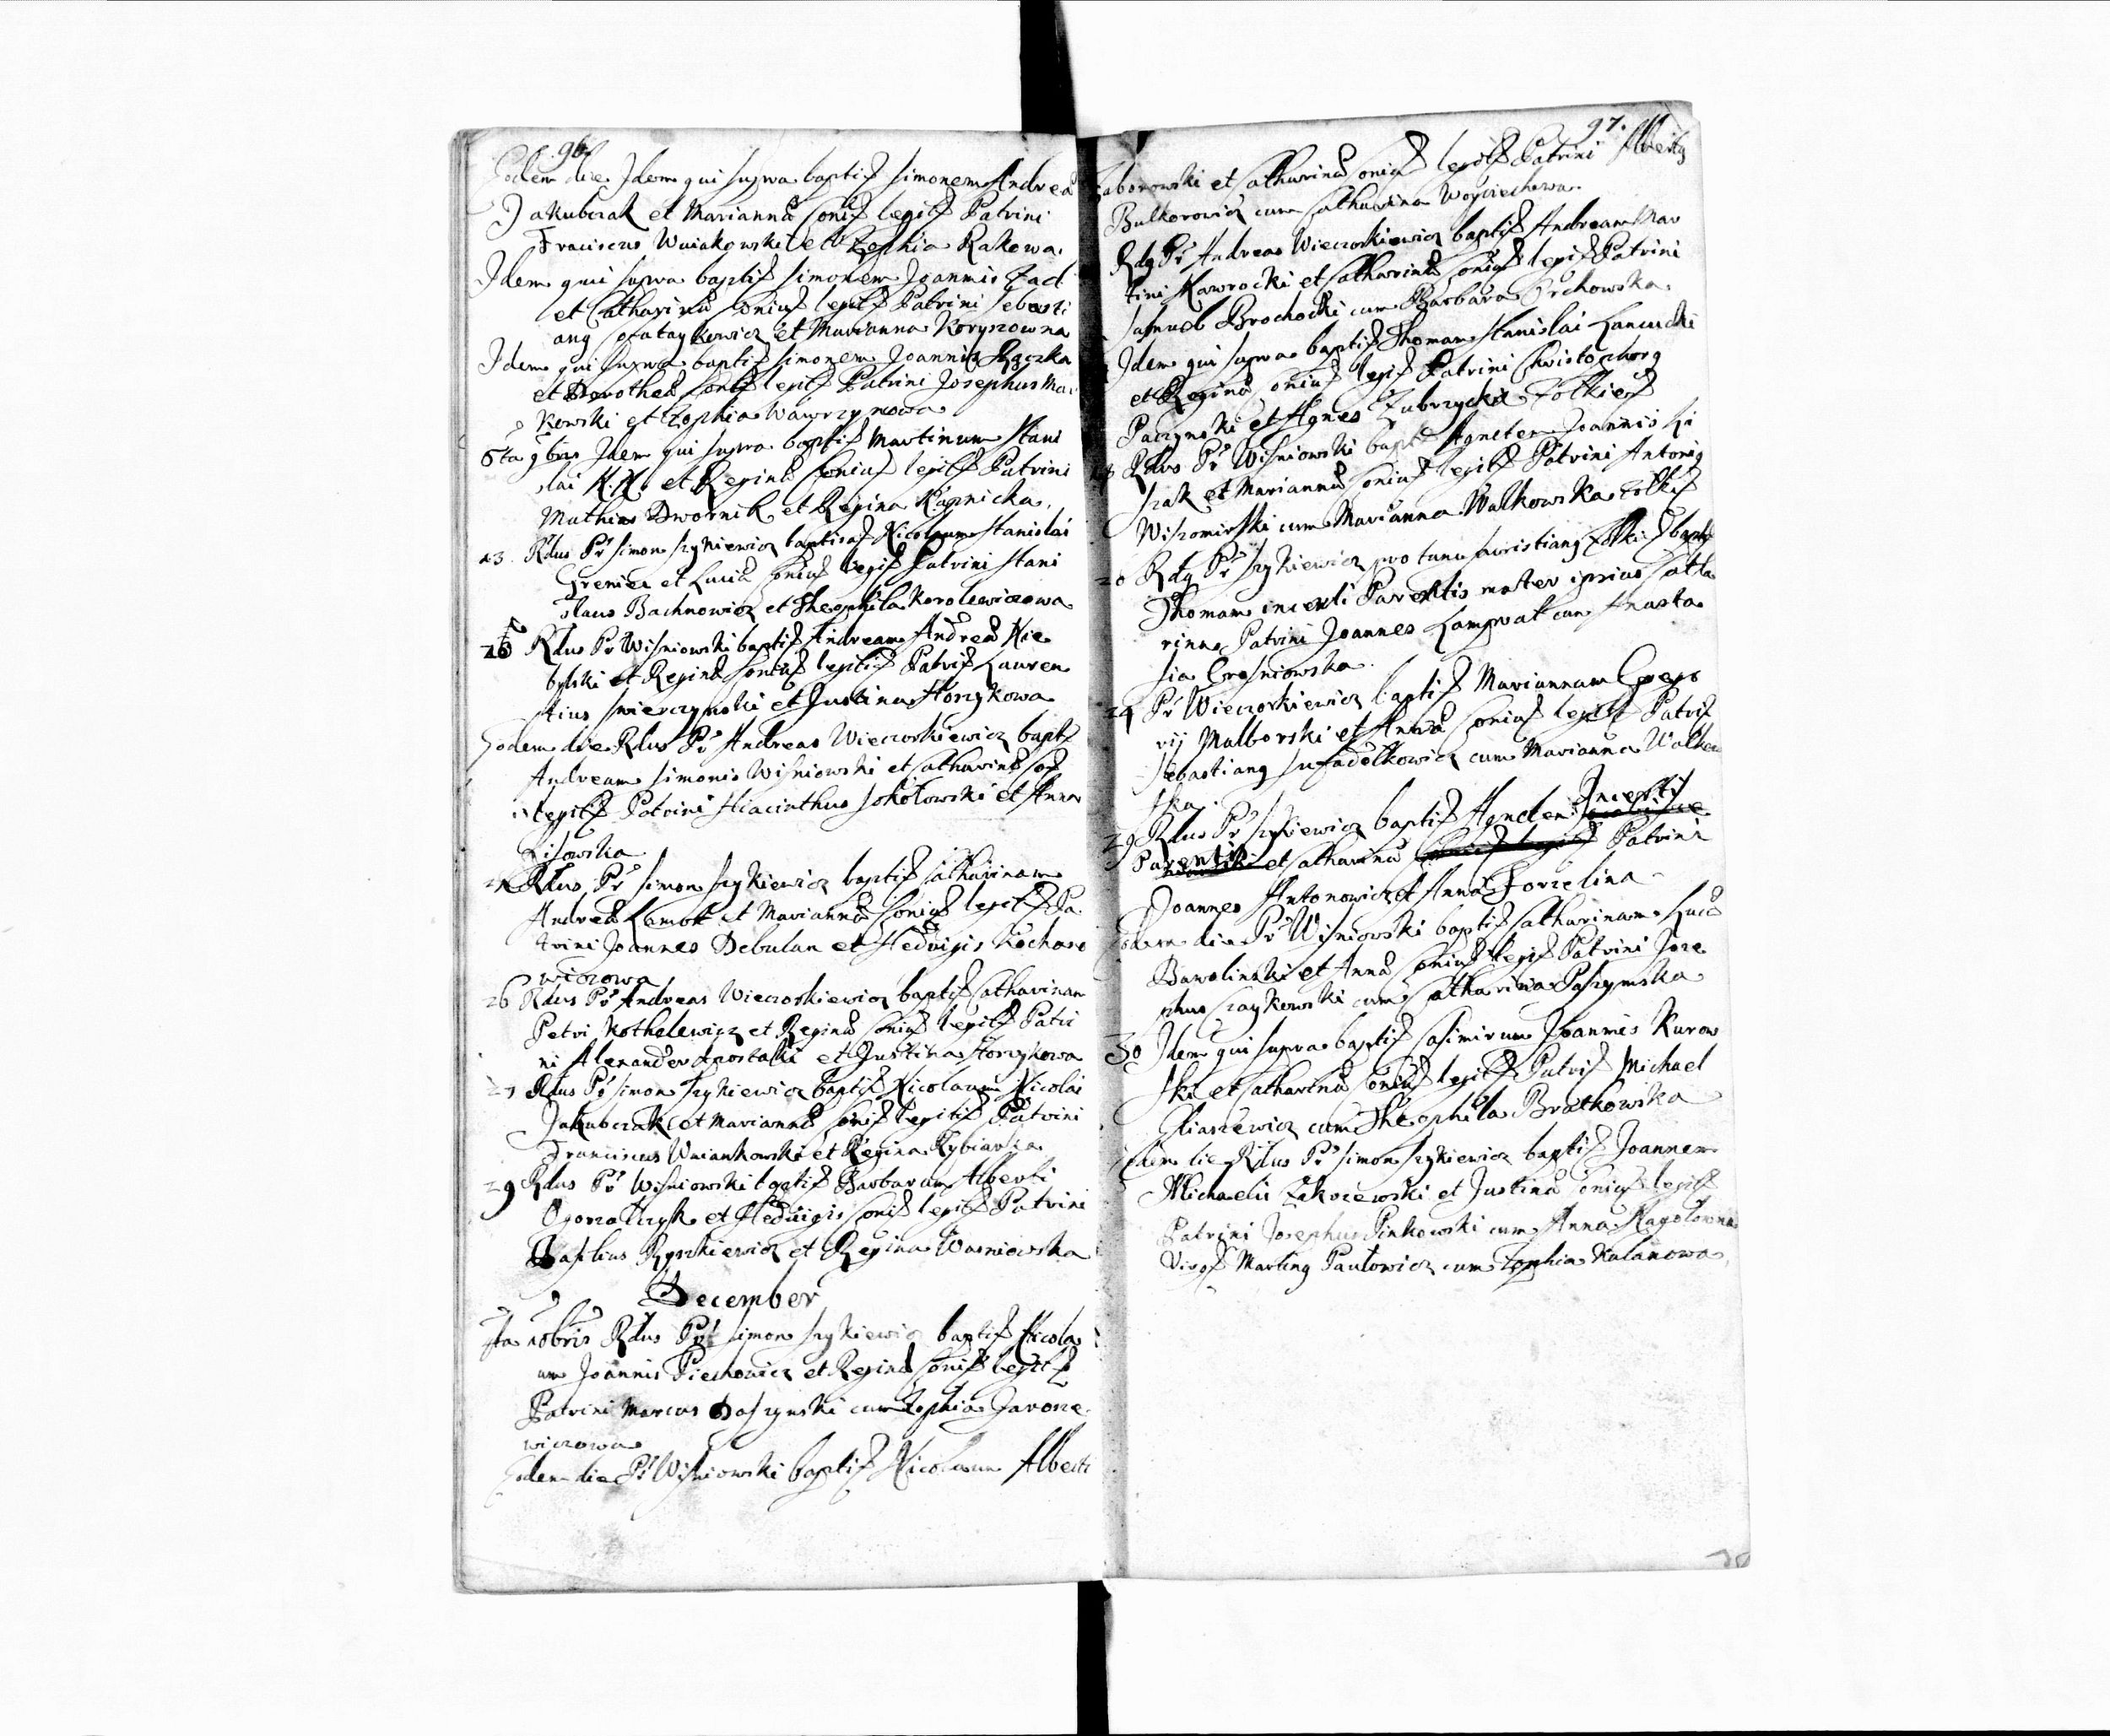 96.
Eodem die Idem qui supra baptis Simonem Andreae
Jakubczak et Marianna Coniu legit Patrini
Franciscus Waiakowski et Zophia Rakowa.
Idem qui supra baptis Simonem Joannis Zad
et Catharina Coniu legit Patrini Sebasti
anq et Marianna Koryszowna
Idem qui supra baptis Simonem Joannis Rączka
et Dorothea Coniu legit Patrini Josephus Ma
kowski et Zophia Wawrzynowa
6ta 9bris Idem qui supra baptis Martinum Stani
slai N.N. et Regina Coniu legit Patrini
Mathias Dwornik et Regina Karnicka.
13. Rdus Pr Simon Szykiewicz baptisa Nicolaum Stanislai
Gremien et Lucia Coniu legit Patrini Stani
slaus Bachnowicz et Theophila Korolewiczowa
Rdus Pr Wisniowski baptis Andream Andrea Kie
bylski et Regina Coniu legit Patri Lauren
tius Swierczynski et Justina Horzykowa
Eodem die Rdus Pr Andreas Wieczorkiewicz bapt
Andream Simonis Wisniowski et Catharina Co
legit Patrini Hiacinthus Sokołowski et Anna
Lisowska
Rdus Pr Simon Szykiewicz baptis Catharinam
Andrea Lamok et Marianna Coniu legit Pa
trini Joannes Debulan et Hedvigis Kochano
wiczowa
26 Rdus Pr Andreas Wieczorkiewicz baptis Catharinam
Petri Kothelewicz et Regina Coniu legit Patri
ni Alexander Apostalski et Justina Horzykowa
27 Rdus Pr Simon Szykiewicz baptis Nicolaum Nicolai
Jakubczak et Marianna Coni legit Patrini
Franciscus Waiankowski et Regina Rybiarka
29 Rdus Pr Wisniowski baptis Barbaram Alberti
Ogorzałczyk et Hedvigis Coni legit Patrini
Basilius Ryszkiewicz et Regina Wasniowska
December
10bris Rdus Pr Simon Szykiewicz baptis Nicola
um Joannis Piechowicz et Regina Coni legit
Patrini Marcus Daszynski cum Zophia Jarosze
wiczowa
Eodem die Pr Wisniowski baptis Nicolaum Alberti
97.
Zaborowski et Catharina Coniu legit Patrini Albertq
Bulkorowicz cum Catharina Woyciechowa.
Rdq Pr Andreas Wieczorkiewicz baptis Andream Mar
tini Nawrocki et Catharina Coniu legit Patrini
Samuel Brochocki cum Barbara Orchowska.
Idem qui supra baptis Thomam Stanislai Lancucki
et Regina Coniu legit Patrini Christophorq
Paczynski et Agnes Zubrzycka Zolkie
18 Rdus Pr Wisniowski bapt Agnetem Joannis Li
szak et Marianna Coniu legit Patrini Antoniq
Wiszomirski cum Marianna Walkowska Zolki
20 Rdq Pr Szykiewicz pro tunc Zolkie bapt
Thomam incerti Parentis mater ipsius Catha
rina Patrini Joannes Lamprat cum Anasta
sia Crosniowska.
24 Pr Wieczorkiewicz baptis Mariannam Grego
rij Malborski et Anna Coniu legit Patri
Sebastianq cum Marianna Walkow
ska.
29 Rdus Pr Szykiewicz baptis Agneten Incerti
Parentis et Catharina Patrini
Joannes Antonowicz et Anna Forzelina
Eodem die Pr Wisniowski baptis Catharinam Luca
Bawolinski et Anna Coniu legit Patrini Jose
phus Czaykowski cum Catharina Paszynska
30 Idem qui supra baptis Casimirum Joannis Kurow
ski et Catharina Coniu legit Patri Michael
Eliaszewicz cum Theophila Bratkowska
Eodem die Rdus Pr Simon Szykiewicz baptis Joannem
Michaelis Zakrzewski et Justina Coniu legit
Patrini Josephus Pinkowski cum Anna Ragołowna
Martinq Pawłowicz cum Zophia Kulanowa